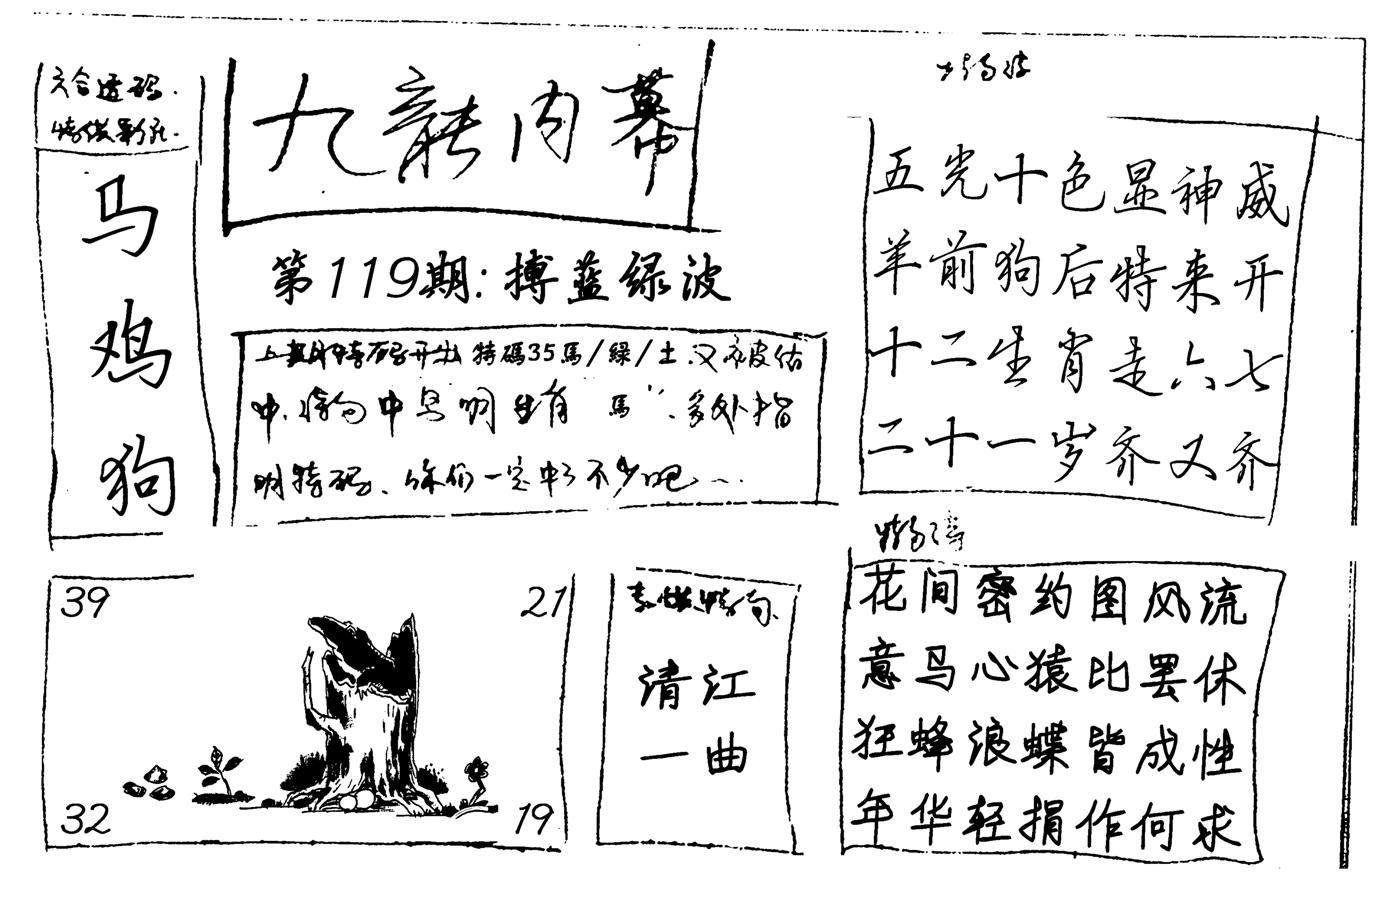 六合透码.
特供彩民.
马
鸡
狗
九龍内幕
第119期:搏蓝绿波
上期特码开出 特碼35馬/緑/土.又被估
中.特句中 明 生肖 馬 . 多处指
明特码. 你们一定中了不少吧...
五光十色显神威
羊前狗后特来开
十二生肖走六七
二十一岁齐又齐
39
21
32
19
清江
一曲
花间密约图风流
意马心猿比罢休
狂蜂浪蝶皆成性
年华轻捐作何求